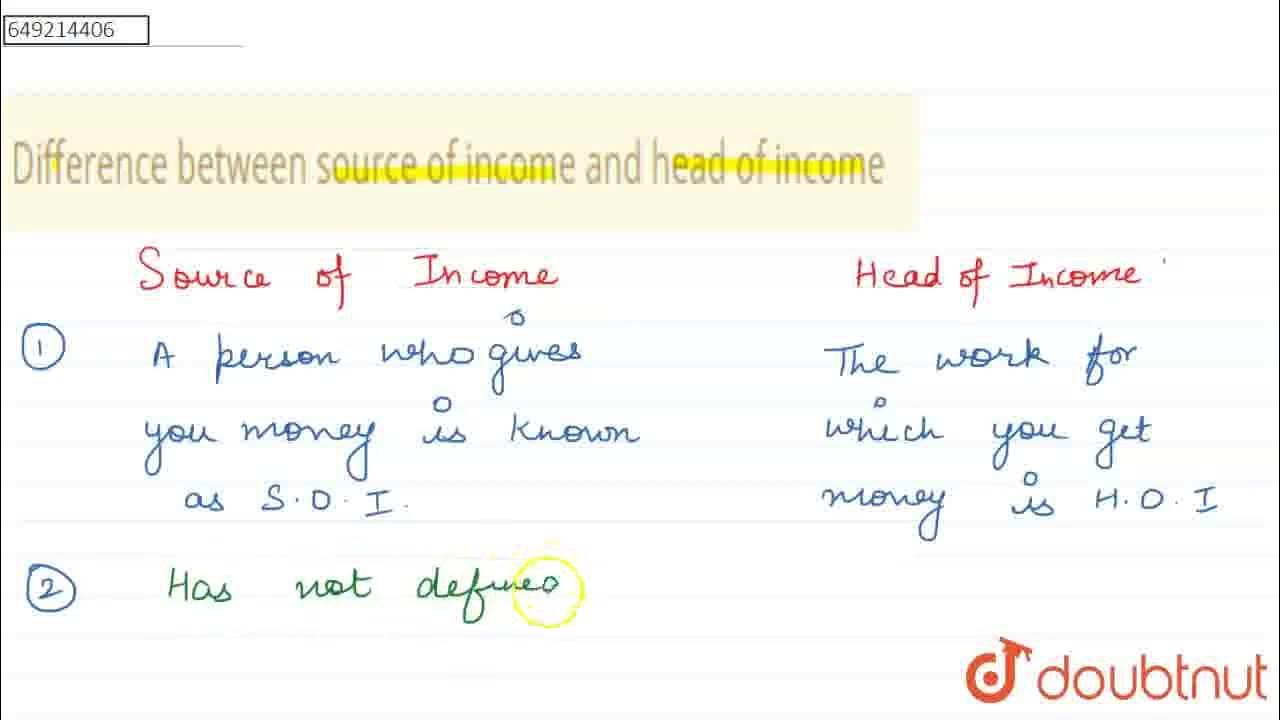 649214406
Difference between source of income and head of income
Source of Income Head of Income
1 A person who gives The work for
you money is known which you get
as S.O.I. money is H.O.I
2 Has not defined
doubtnut